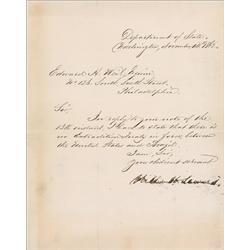 Department of State,
Washington,
Edward H. Weil, Esquire
No. South Street,
Philadelphia.
Sir,
In reply to your note of the
13th instant, I have to state that there is
no Extradition Treaty in force between
the United States and Brazil.
I am, Sir,
Your obedient servant
William H. Seward.